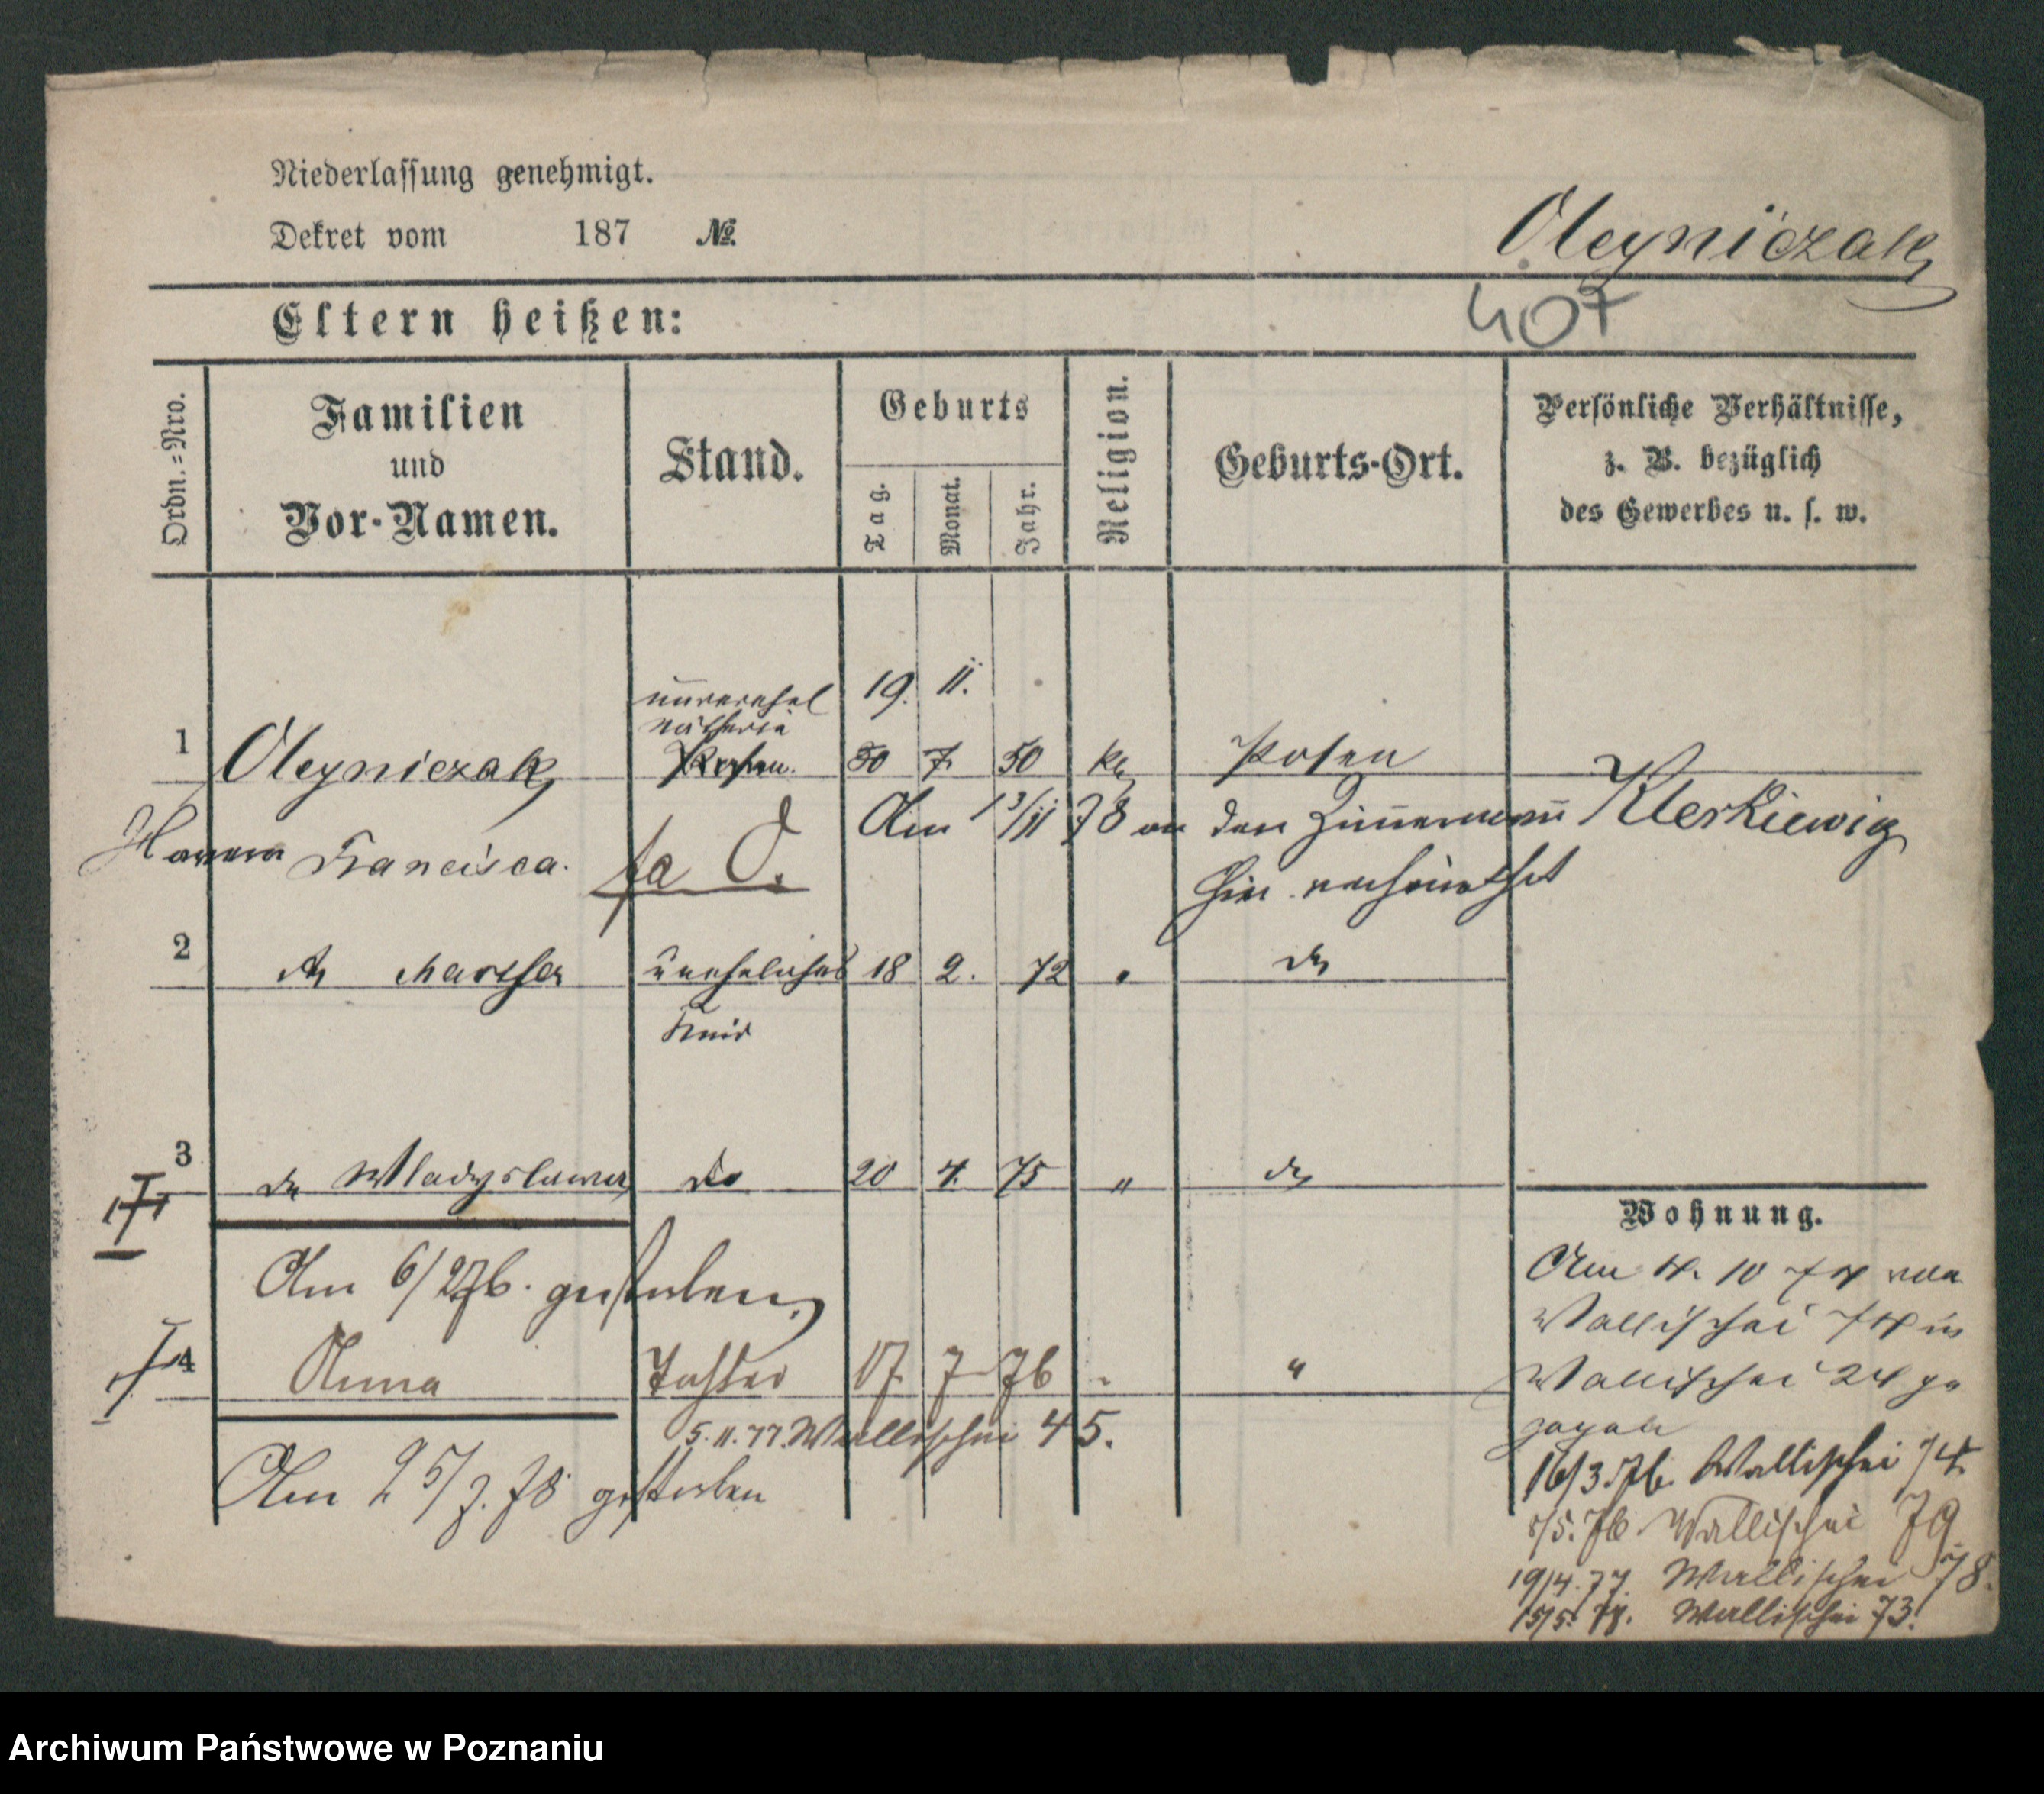 Niederlassung genehmigt.
Dekret vom 187 №.
Oleyniczak
407
Eltern heißen:
Ordn.-Nro.
Familien
und
Vor-Namen.
Stand.
Geburts
Tag.
Monat.
Jahr.
Religion.
Geburts-Ort.
Persönliche Verhältnisse,
z. B. bezüglich
des Gewerbes u. s. w.
unverehel 19. 11.
Nätherin
1 Oleyniczak 30 7. 50 kt Posen
Am 13/11 78 an den Zimmermann Klerkiewig
Francisca.
hier verheirathet
2 do Martha uneheliches 18 2. 72 " do
Kind
3 do Wladyslawa do 20 4. 75 " do
Wohnung.
Am 6/2 76. gestorben.
Am 4. 10 74 von
Wallischei 74 in
4 Anna Tochter 17. 7 76 " "
Wallischei 24 ge
zogen
5. 11. 77. Wallischei 45.
16/3. 76. Wallischei 74.
Am 25/7. 78 gestorben
5/5. 76. Wallischei 79
19/4. 77. Wallischei 78.
15/5. 78. Wallischei 73.
Archiwum Państwowe w Poznaniu